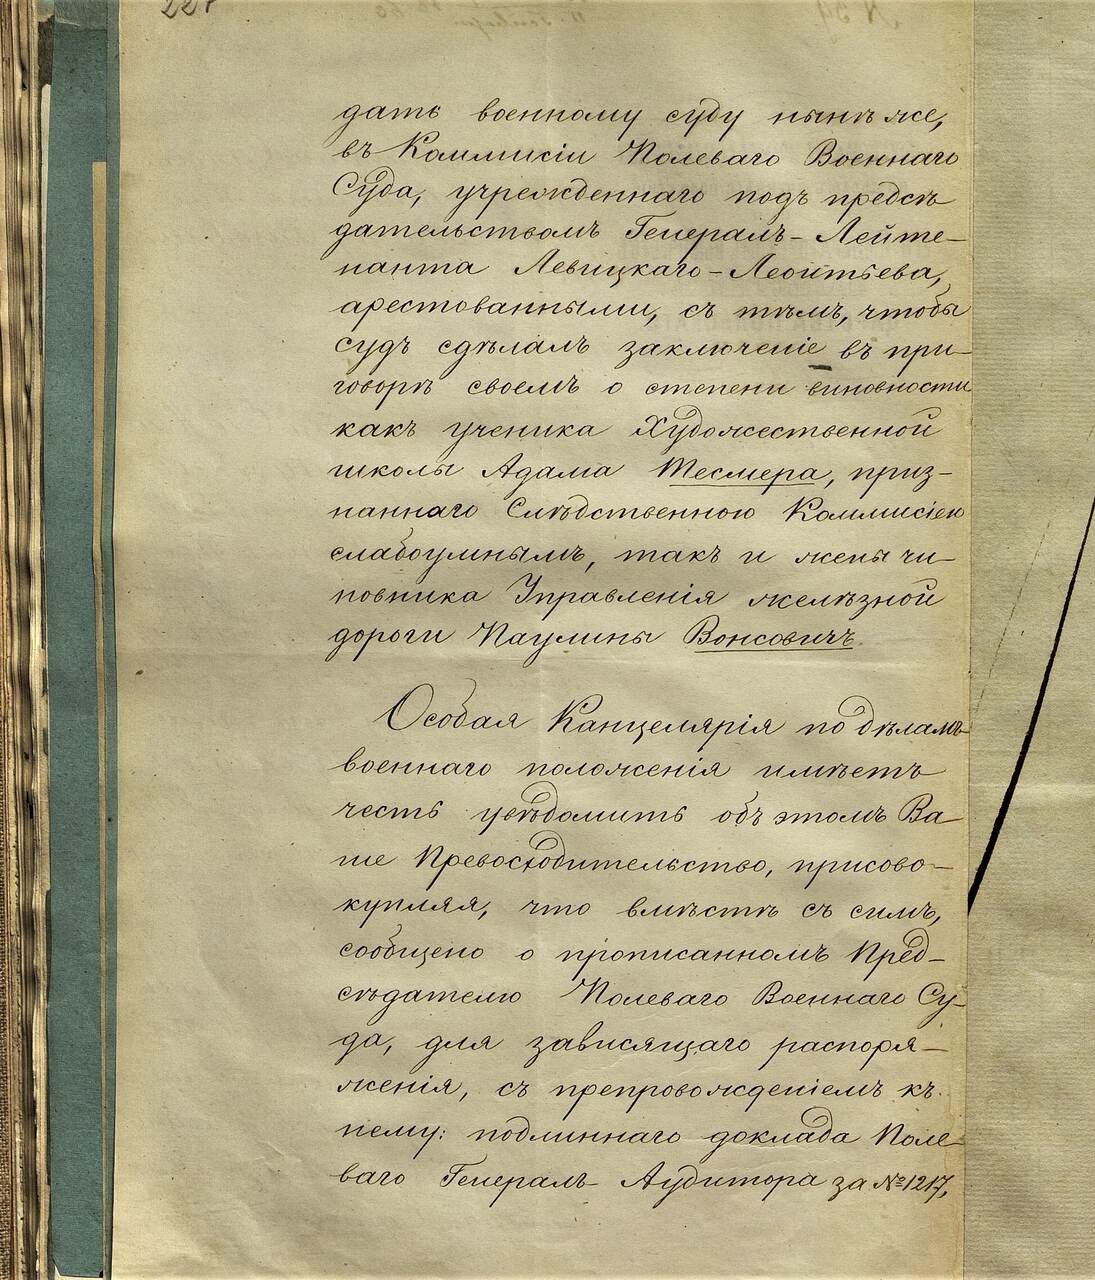 дать военному суду нынѣ же,
въ Коммисіи Полеваго Военнаго
Суда, учрежденнаго подъ предсѣ
дательствомъ Генералъ-Лейте-
нанта Левицкаго-Леонтьева,
арестованными, съ тѣмъ, чтобы
судъ сдѣлалъ заключеніе въ при-
говорѣ своемъ о степени виновности
какъ ученика Художественной
школы Адама Тесмера, приз-
наннаго Слѣдственною Коммисіею
слабоумнымъ, такъ и жены чи-
новника Управленія желѣзной
дороги Паулины Вонсовичъ.
Особая Канцелярія по дѣламъ
военнаго положенія имѣетъ
честь увѣдомить объ этомъ Ва
ше Превосходительство, присово-
купляя, что вмѣстѣ съ симъ,
сообщено о прописанномъ Пред-
сѣдателю Полеваго Военнаго Су-
да, для зависящаго распоря-
женія, съ препровожденіемъ къ
нему: подлиннаго доклада Поле
ваго Генералъ-Аудитора за №1217,